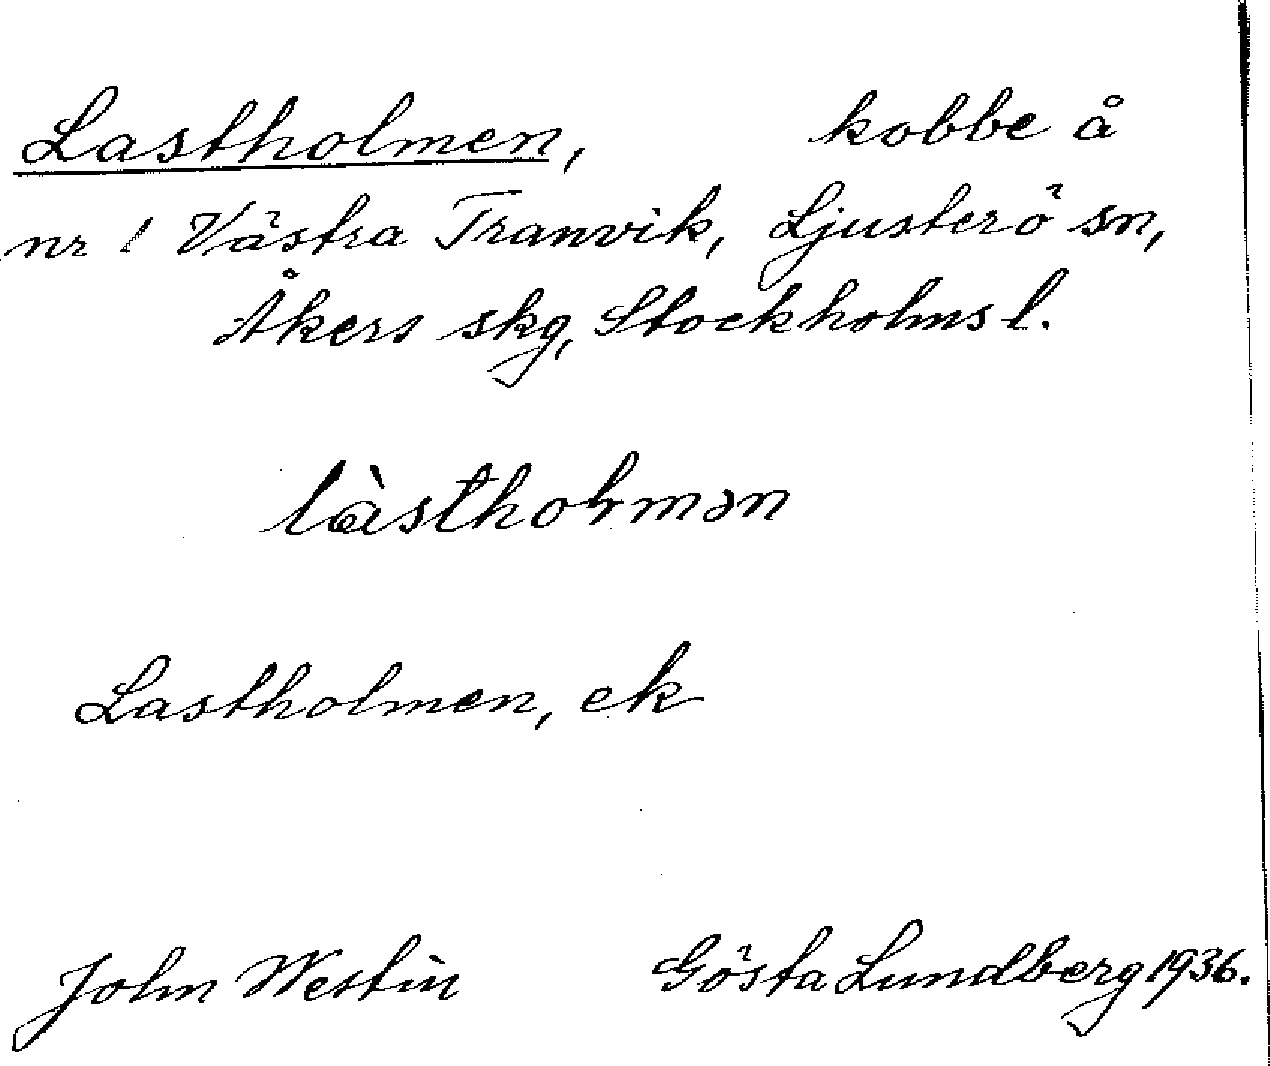 Lastholmen, kobbe å
nr 1 Västra Tranvik, Ljusterö sn,
Åkers skg, Stockholms l.
làstholmən
Lastholmen, ek
John Westin Gösta Lundberg 1936.